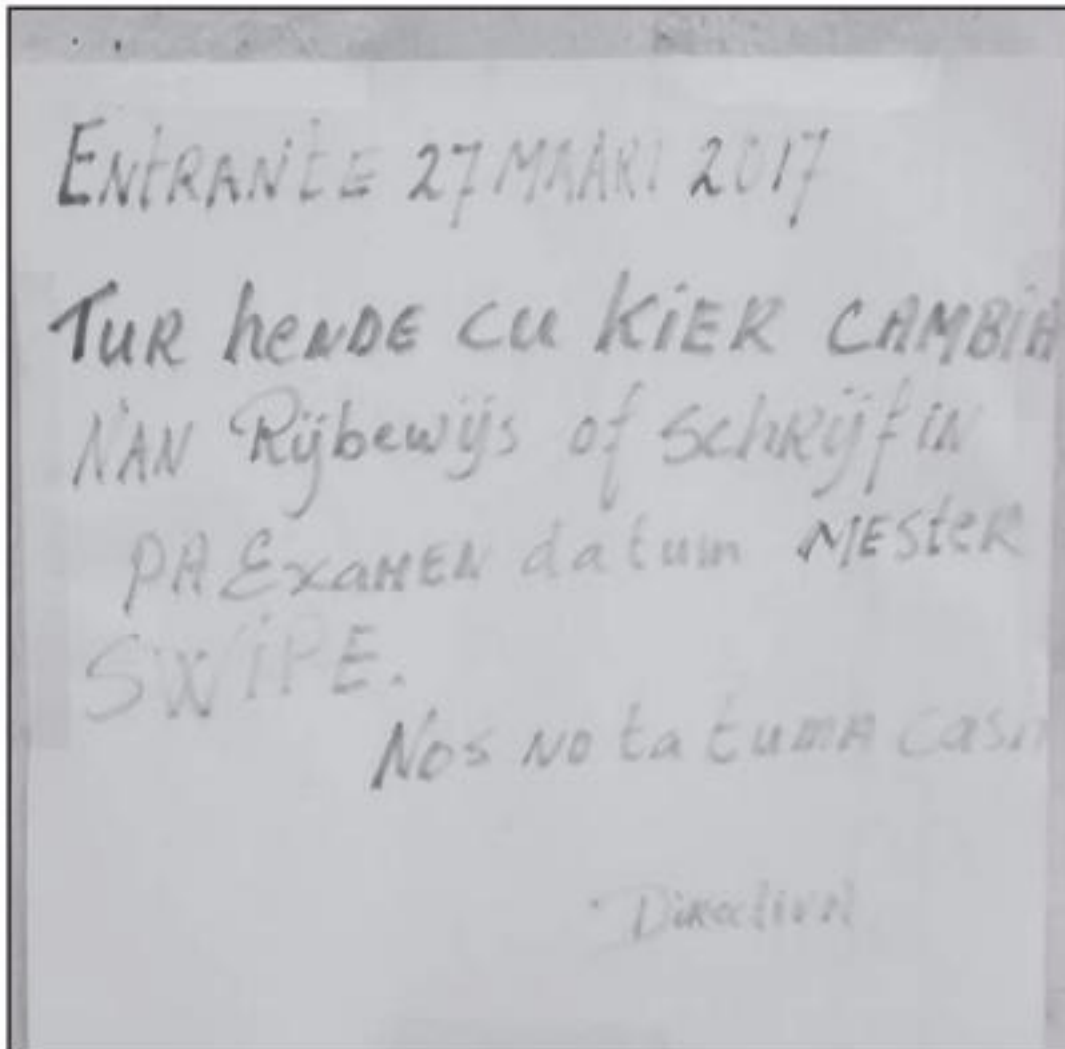 ENTRANTE 27 MAART 2017
TUR hENDE CU KiER CAMBIA
NAN Rijbewijs of SchRijf iN
PA ExaMEN datum MESTER
SWiPE.
Nos No ta tumA